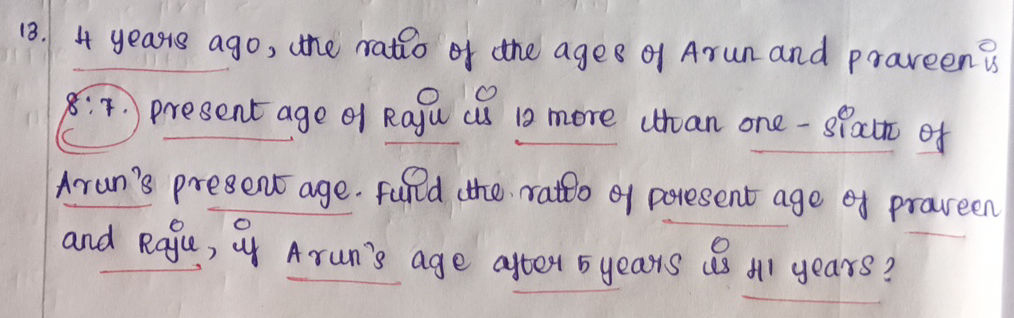 13. 4 years ago, the ratio of the ages of Arun and praveen is
8:7. present age of Raju is 12 more than one - sixth of
Arun's present age. Find the ratio of present age of praveen
and Raju, if Arun's age after 5 years is 41 years?